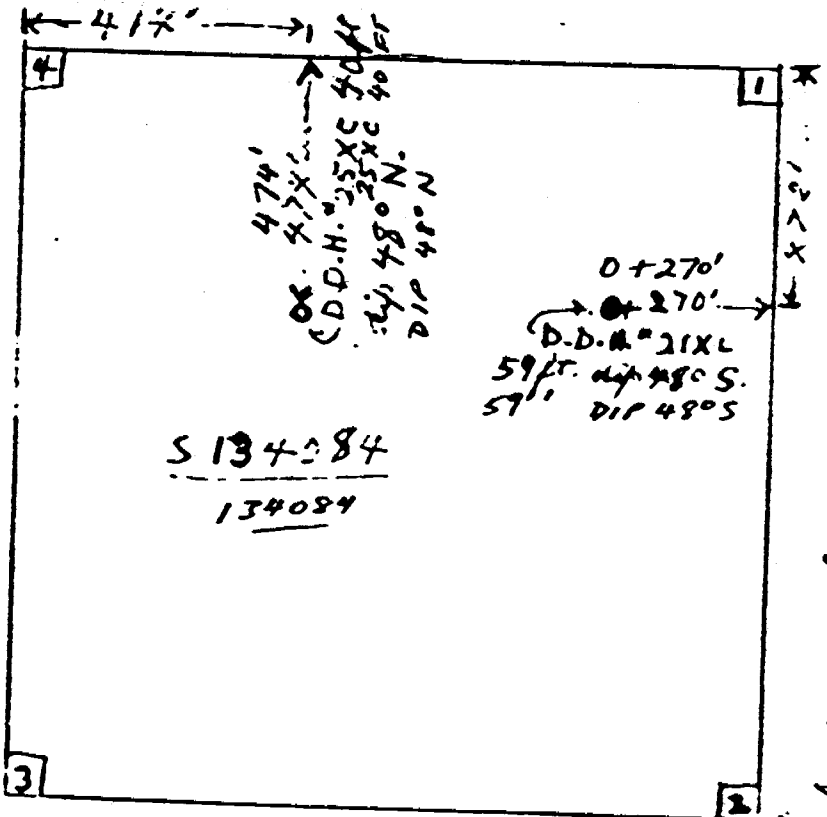 4
1
474'
(D.D.H. # 25XC 40 ft
25XC 40 FT
dip 48° N.
DIP 48° N
O + 270'
270'
D.D.H. # 21XL
59 ft. dip 48° S.
59'' DIP 48° S
S 134084
134084
3
2